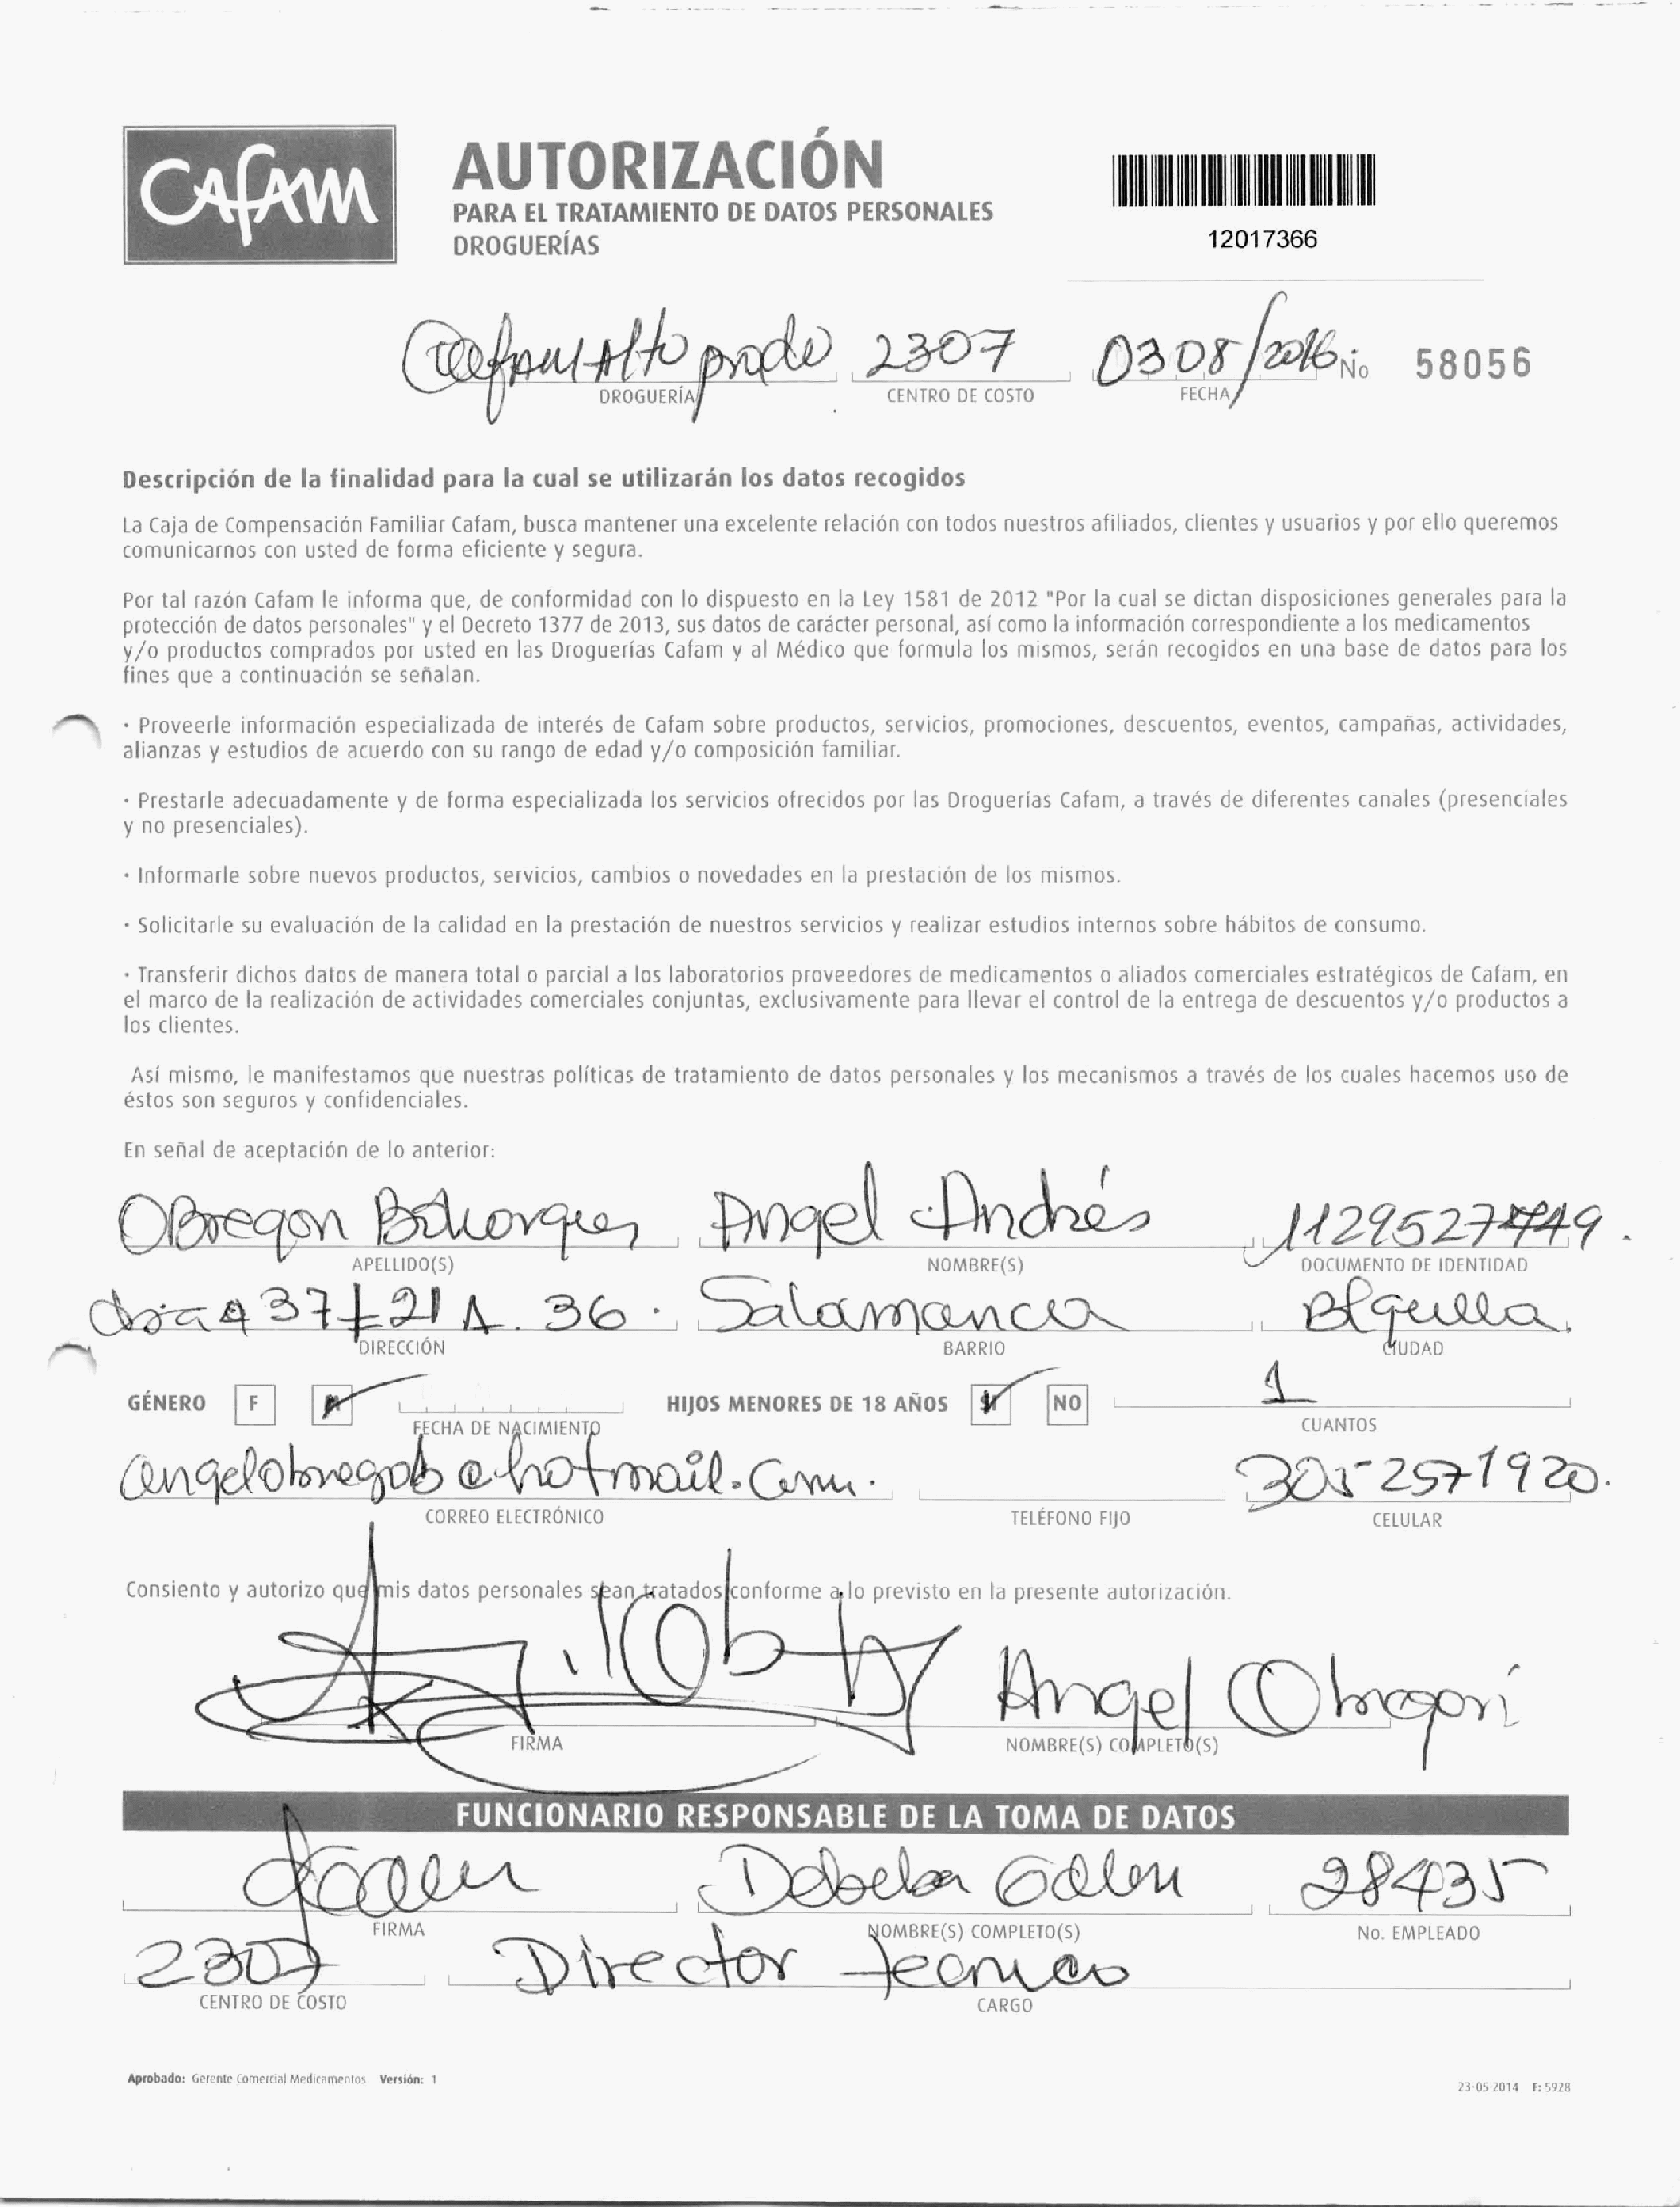 CAFAM
AUTORIZACIÓN
PARA EL TRATAMIENTO DE DATOS PERSONALES
DROGUERÍAS
12017366
Cafam Alto prado 2307 0308/2016 No 58056
DROGUERÍA CENTRO DE COSTO FECHA
Descripción de la finalidad para la cual se utilizarán los datos recogidos
La Caja de Compensación Familiar Cafam, busca mantener una excelente relación con todos nuestros afiliados, clientes y usuarios y por ello queremos
comunicarnos con usted de forma eficiente y segura.
Por tal razón Cafam le informa que, de conformidad con lo dispuesto en la Ley 1581 de 2012 "Por la cual se dictan disposiciones generales para la
protección de datos personales" y el Decreto 1377 de 2013, sus datos de carácter personal, así como la información correspondiente a los medicamentos
y/o productos comprados por usted en las Droguerías Cafam y al Médico que formula los mismos, serán recogidos en una base de datos para los
fines que a continuación se señalan.
· Proveerle información especializada de interés de Cafam sobre productos, servicios, promociones, descuentos, eventos, campañas, actividades,
alianzas y estudios de acuerdo con su rango de edad y/o composición familiar.
· Prestarle adecuadamente y de forma especializada los servicios ofrecidos por las Droguerías Cafam, a través de diferentes canales (presenciales
y no presenciales).
· Informarle sobre nuevos productos, servicios, cambios o novedades en la prestación de los mismos.
· Solicitarle su evaluación de la calidad en la prestación de nuestros servicios y realizar estudios internos sobre hábitos de consumo.
· Transferir dichos datos de manera total o parcial a los laboratorios proveedores de medicamentos o aliados comerciales estratégicos de Cafam, en
el marco de la realización de actividades comerciales conjuntas, exclusivamente para llevar el control de la entrega de descuentos y/o productos a
los clientes.
Así mismo, le manifestamos que nuestras políticas de tratamiento de datos personales y los mecanismos a través de los cuales hacemos uso de
éstos son seguros y confidenciales.
En señal de aceptación de lo anterior:
OBregon Angel Andrés
APELLIDO(S) NOMBRE(S) DOCUMENTO DE IDENTIDAD
37 21 A. 36. Salamanca Blquilla.
DIRECCIÓN BARRIO CIUDAD
GÉNERO F M HIJOS MENORES DE 18 AÑOS SI NO 1
FECHA DE NACIMIENTO CUANTOS
angelobregob@hotmail.com. 305 2571920.
CORREO ELECTRÓNICO TELÉFONO FIJO CELULAR
Consiento y autorizo que mis datos personales sean tratados conforme a lo previsto en la presente autorización.
Angel Obregon
FIRMA NOMBRE(S) COMPLETO(S)
FUNCIONARIO RESPONSABLE DE LA TOMA DE DATOS
28435
FIRMA NOMBRE(S) COMPLETO(S) No. EMPLEADO
2307 Director tecnico
CENTRO DE COSTO CARGO
Aprobado: Gerente Comercial Medicamentos Versión: 1
23-05-2014 F: 5928